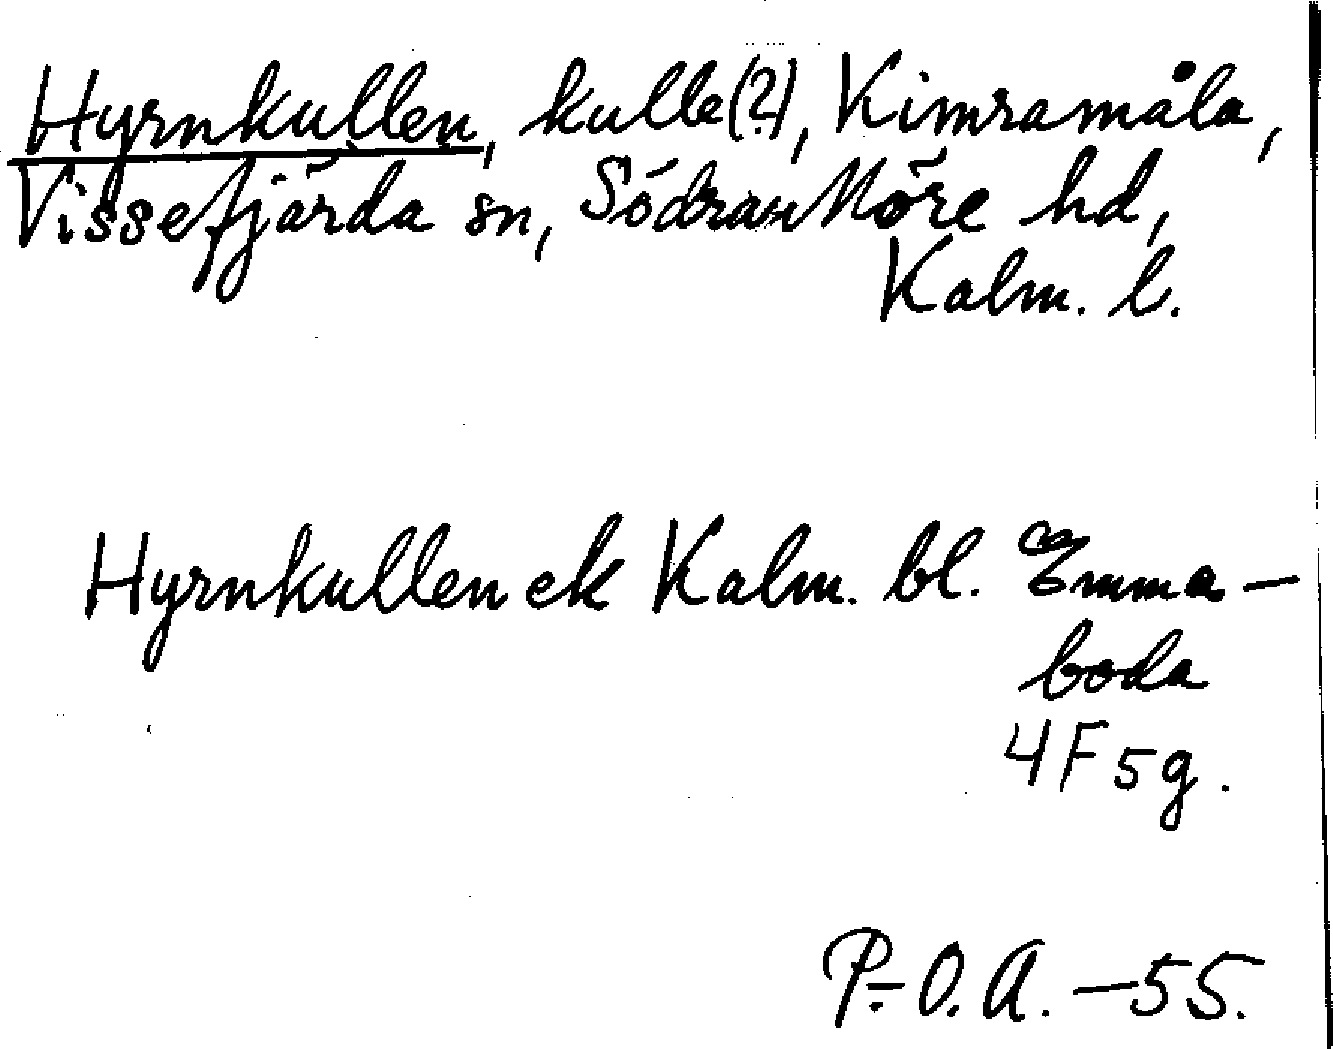 Hyrnkullen, kulle(?), Kimramåla,
Vissefjärda sn, Södra Möre hd,
Kalm. l.
Hyrnkullen ek Kalm. bl. Emma-
boda
4F5g.
P.-O.A. -55.